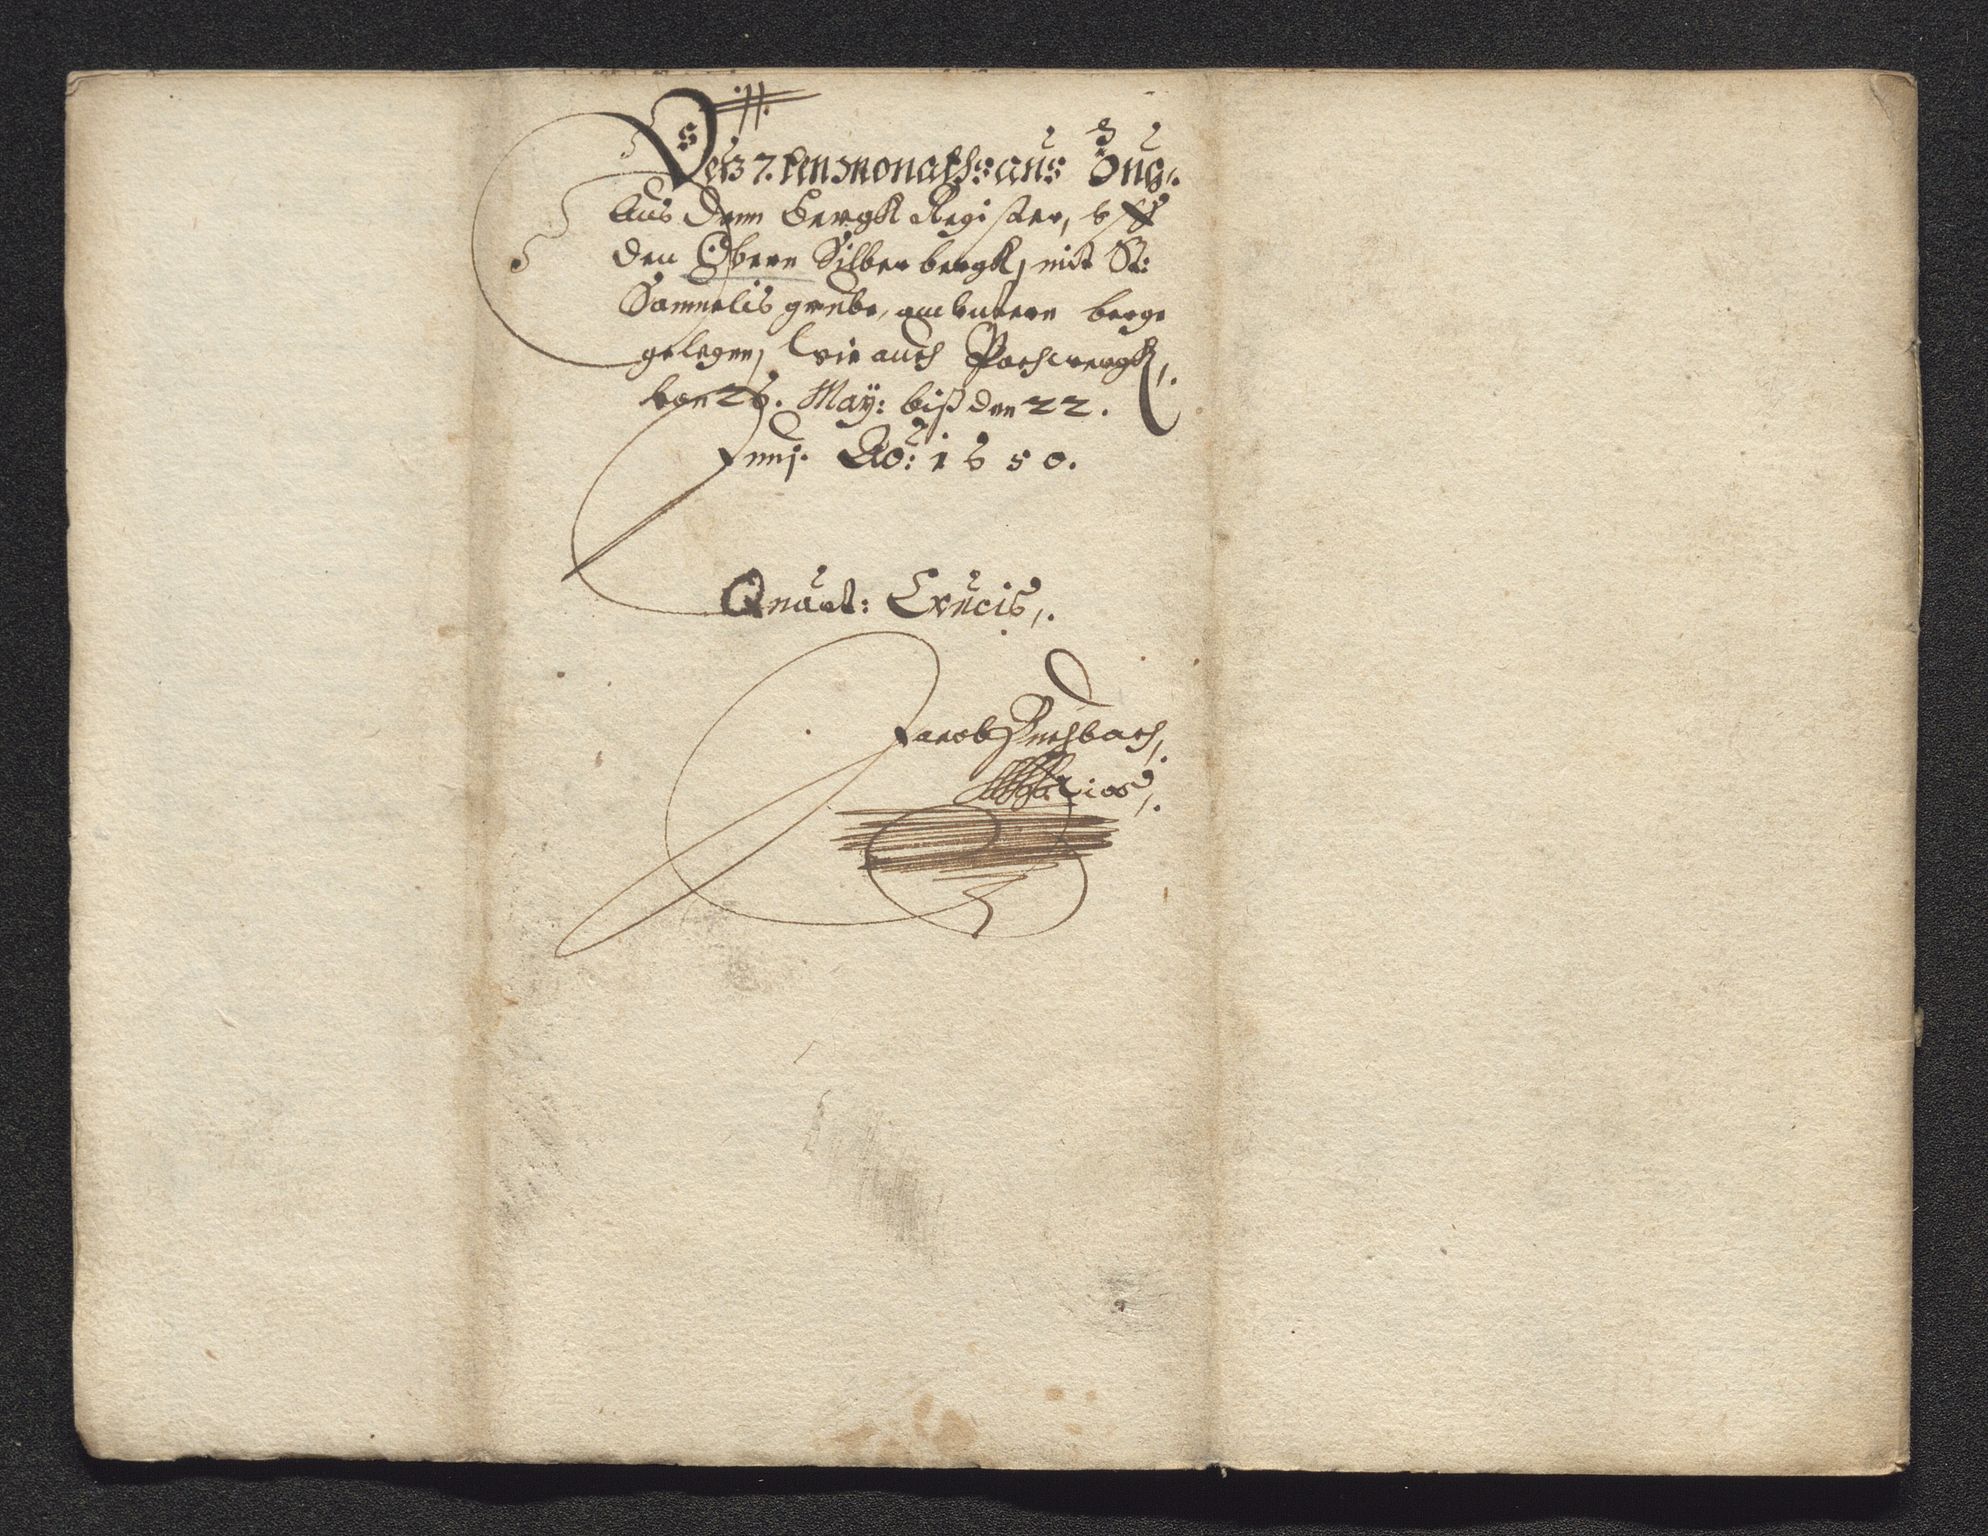 Des 7. ten Monaths aus Zug,.
Aus dem Bergk Register, vff
den Obern Silberbergk, mit St:
Samuelis grube, am vntern berge
gelegen, wie auch Pochwergk,.
von 26. May: biß den 22.
Junij. Ao: 1650.
Quart: Crucis,.
Jacob Buchbach,.